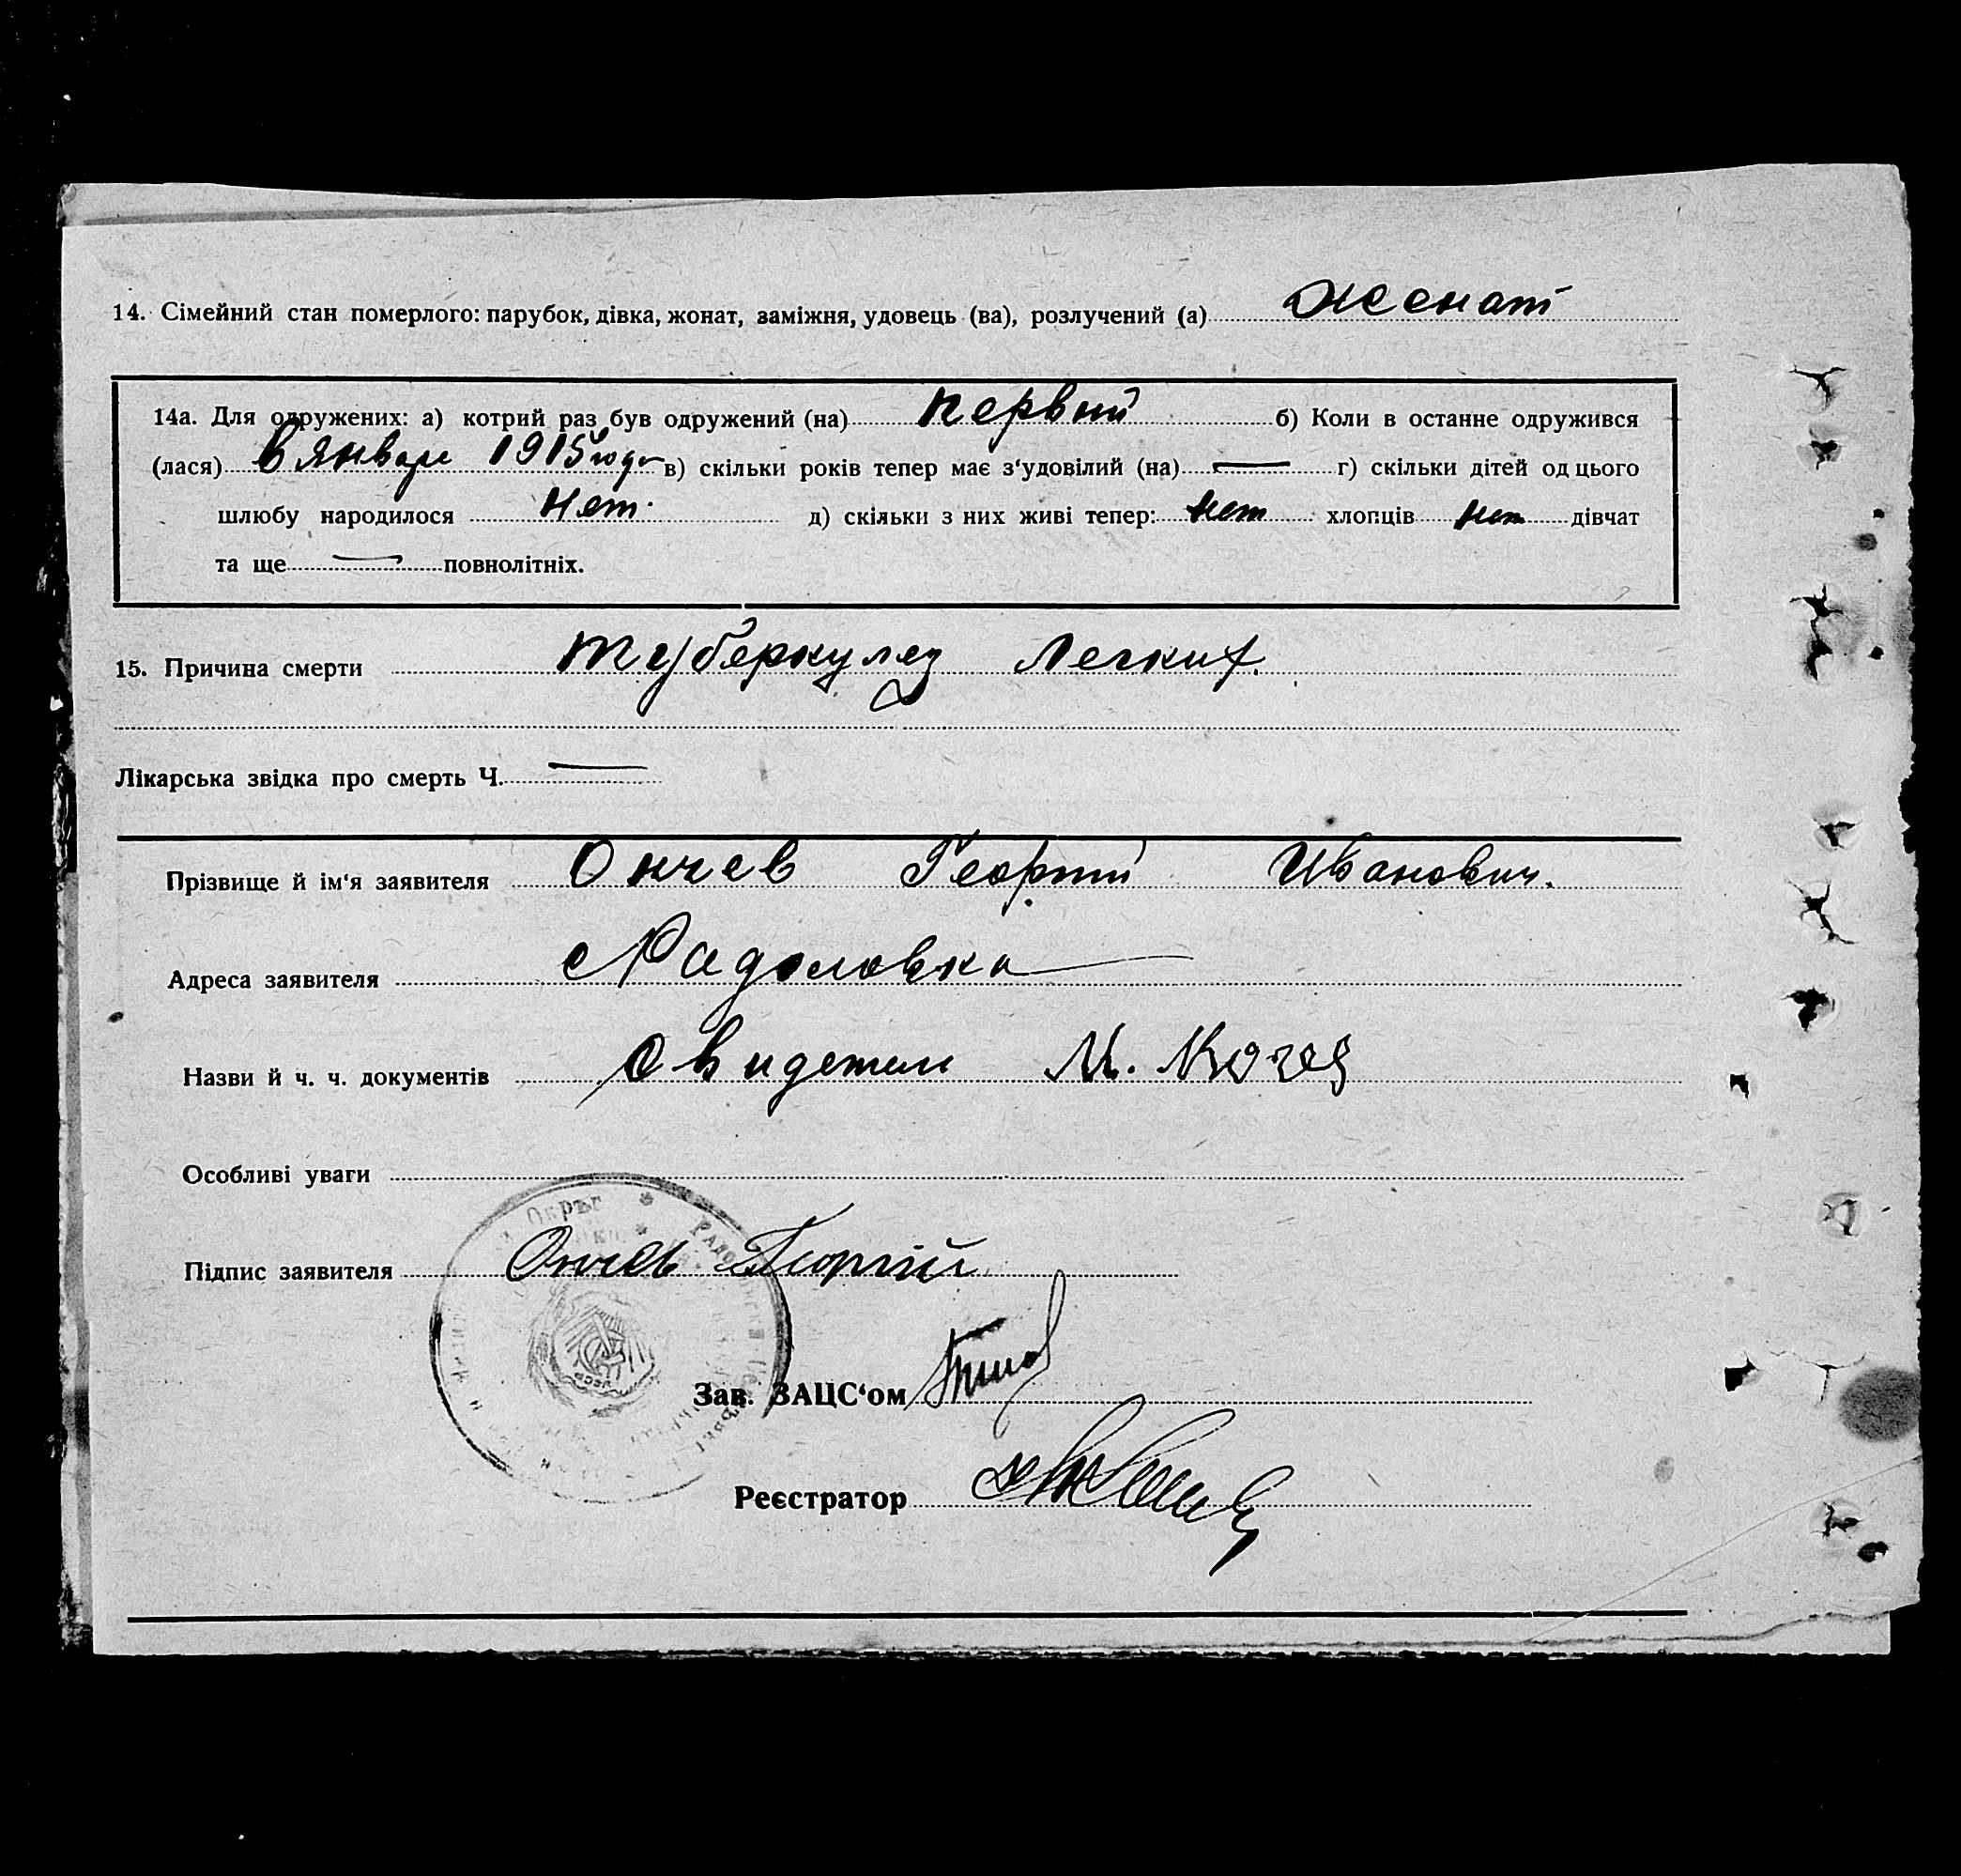 14. Сімейний стан померлого: парубок, дівка, жонат, заміжня, удовець (ва), розлучений (а) женат
14а. Для одружених: а) котрий раз був одружений (на) первый б) Коли в останне одружився
(лася) в январе 1915 года в) скільки років тепер має з‘удовілий (на) — г) скільки дітей од цього
шлюбу народилося нет. д) скільки з них живі тепер: нет хлопців нет дівчат
та ще — повнолітніх.
15. Причина смерти туберкулез легких.
Лікарська звідка про смерть Ч. —
Прізвище й ім‘я заявителя Ончев Георгий Иванович.
Адреса заявителя с Радоловка
Назви й ч. ч. документів Свидетели М.
Особливі уваги
Підпис заявителя Ончев Георгій
Зав. ЗАЦС‘ом
Реєстратор